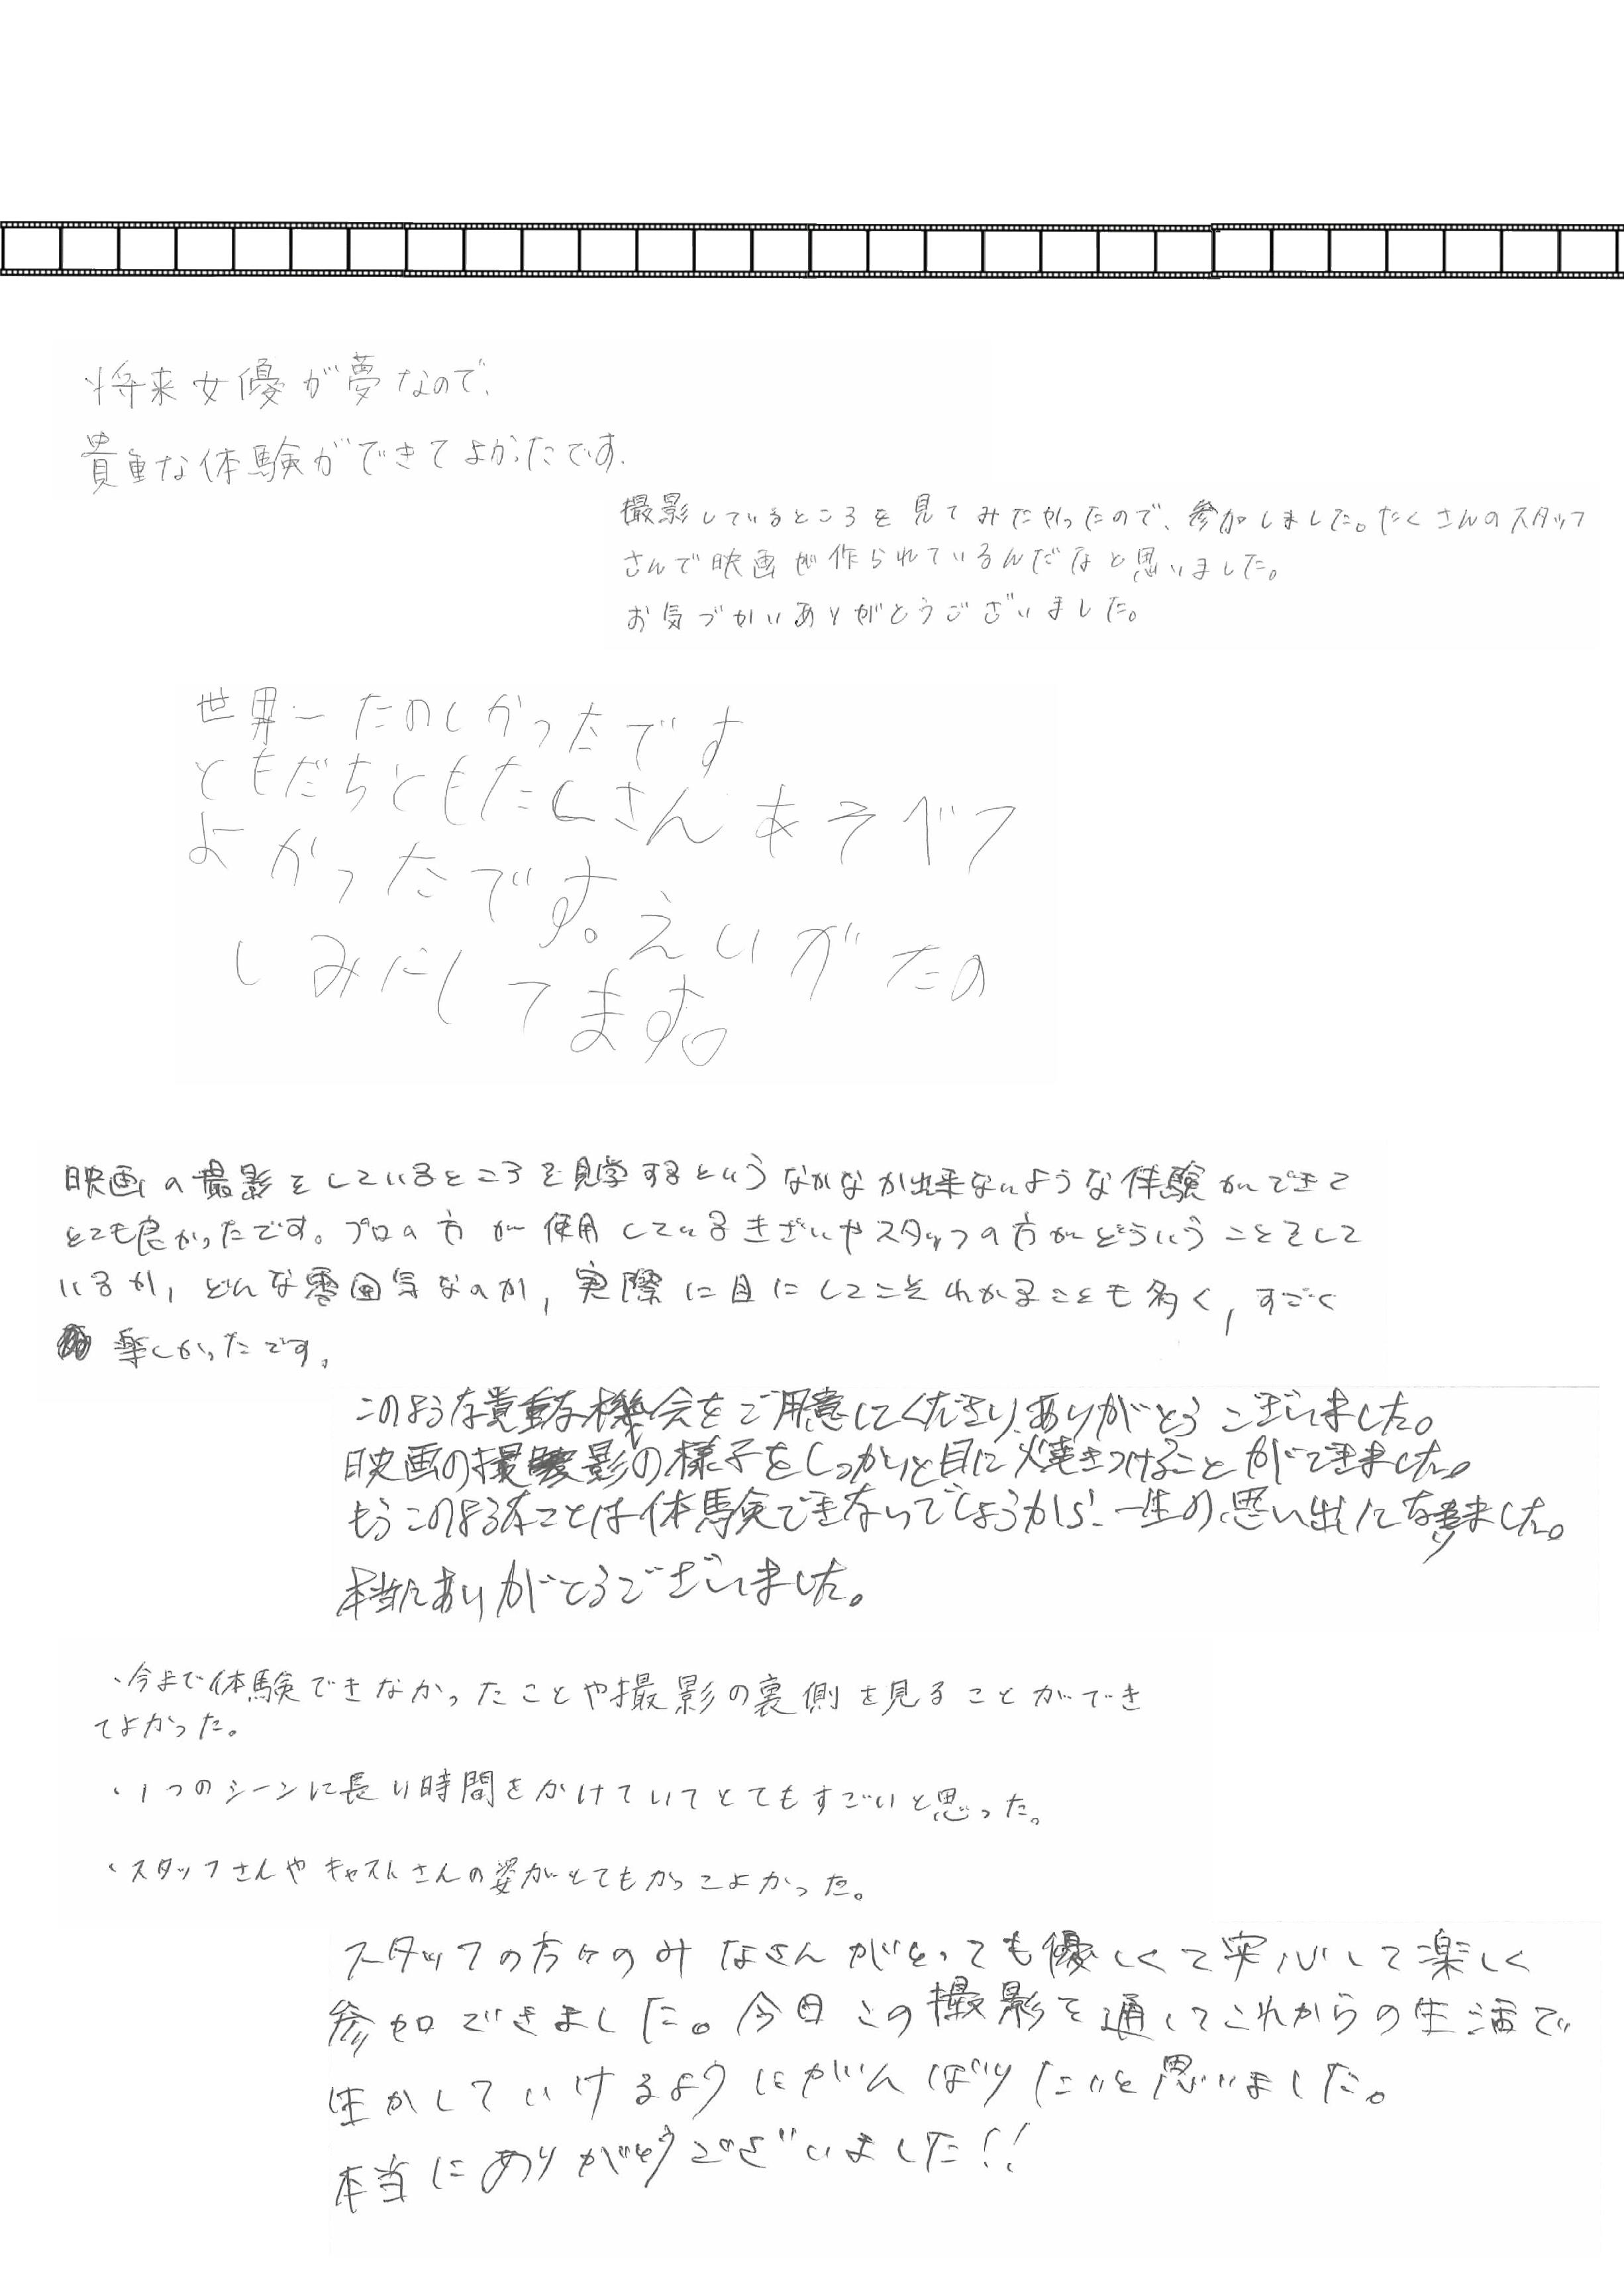 将来女優が夢なので、
貴重な体験ができてよかったです。
撮影しているところを見てみたかったので、参加しました。たくさんのスタッフ
さんで映画が作られているんだなと思いました。
お気づかいありがとうございました。
世界一たのしかったです
ともだちともたくさんあそべて
よかったです。えいがたの
しみにしてます。
映画の撮影をしているところを見学するというなかなか出来ないような体験ができて
とても良かったです。プロの方が使用しているきざいやスタッフの方がどういうことをして
いるか,どんな雰囲気なのか,実際に目にしてこそわかることも多く,すごく
楽しかったです。
このような貴重な機会をご用意してくださり、ありがとうございました。
映画の撮影の様子をしっかりと目に焼きつけることができました。
もうこのようなことは体験できないでしょうから、一生の思い出になりました。
本当にありがとうございました。
・今まで体験できなかったことや撮影の裏側を見ることができ
てよかった。
・1つのシーンに長い時間をかけていてとてもすごいと思った。
・スタッフさんやキャストさんの姿がとてもかっこよかった。
スタッフの方々のみなさんがとっても優しくて安心して楽しく
参加できました。今日この撮影を通してこれからの生活で
生かしていけるようにがんばりたいと思いました。
本当にありがとうございました!!